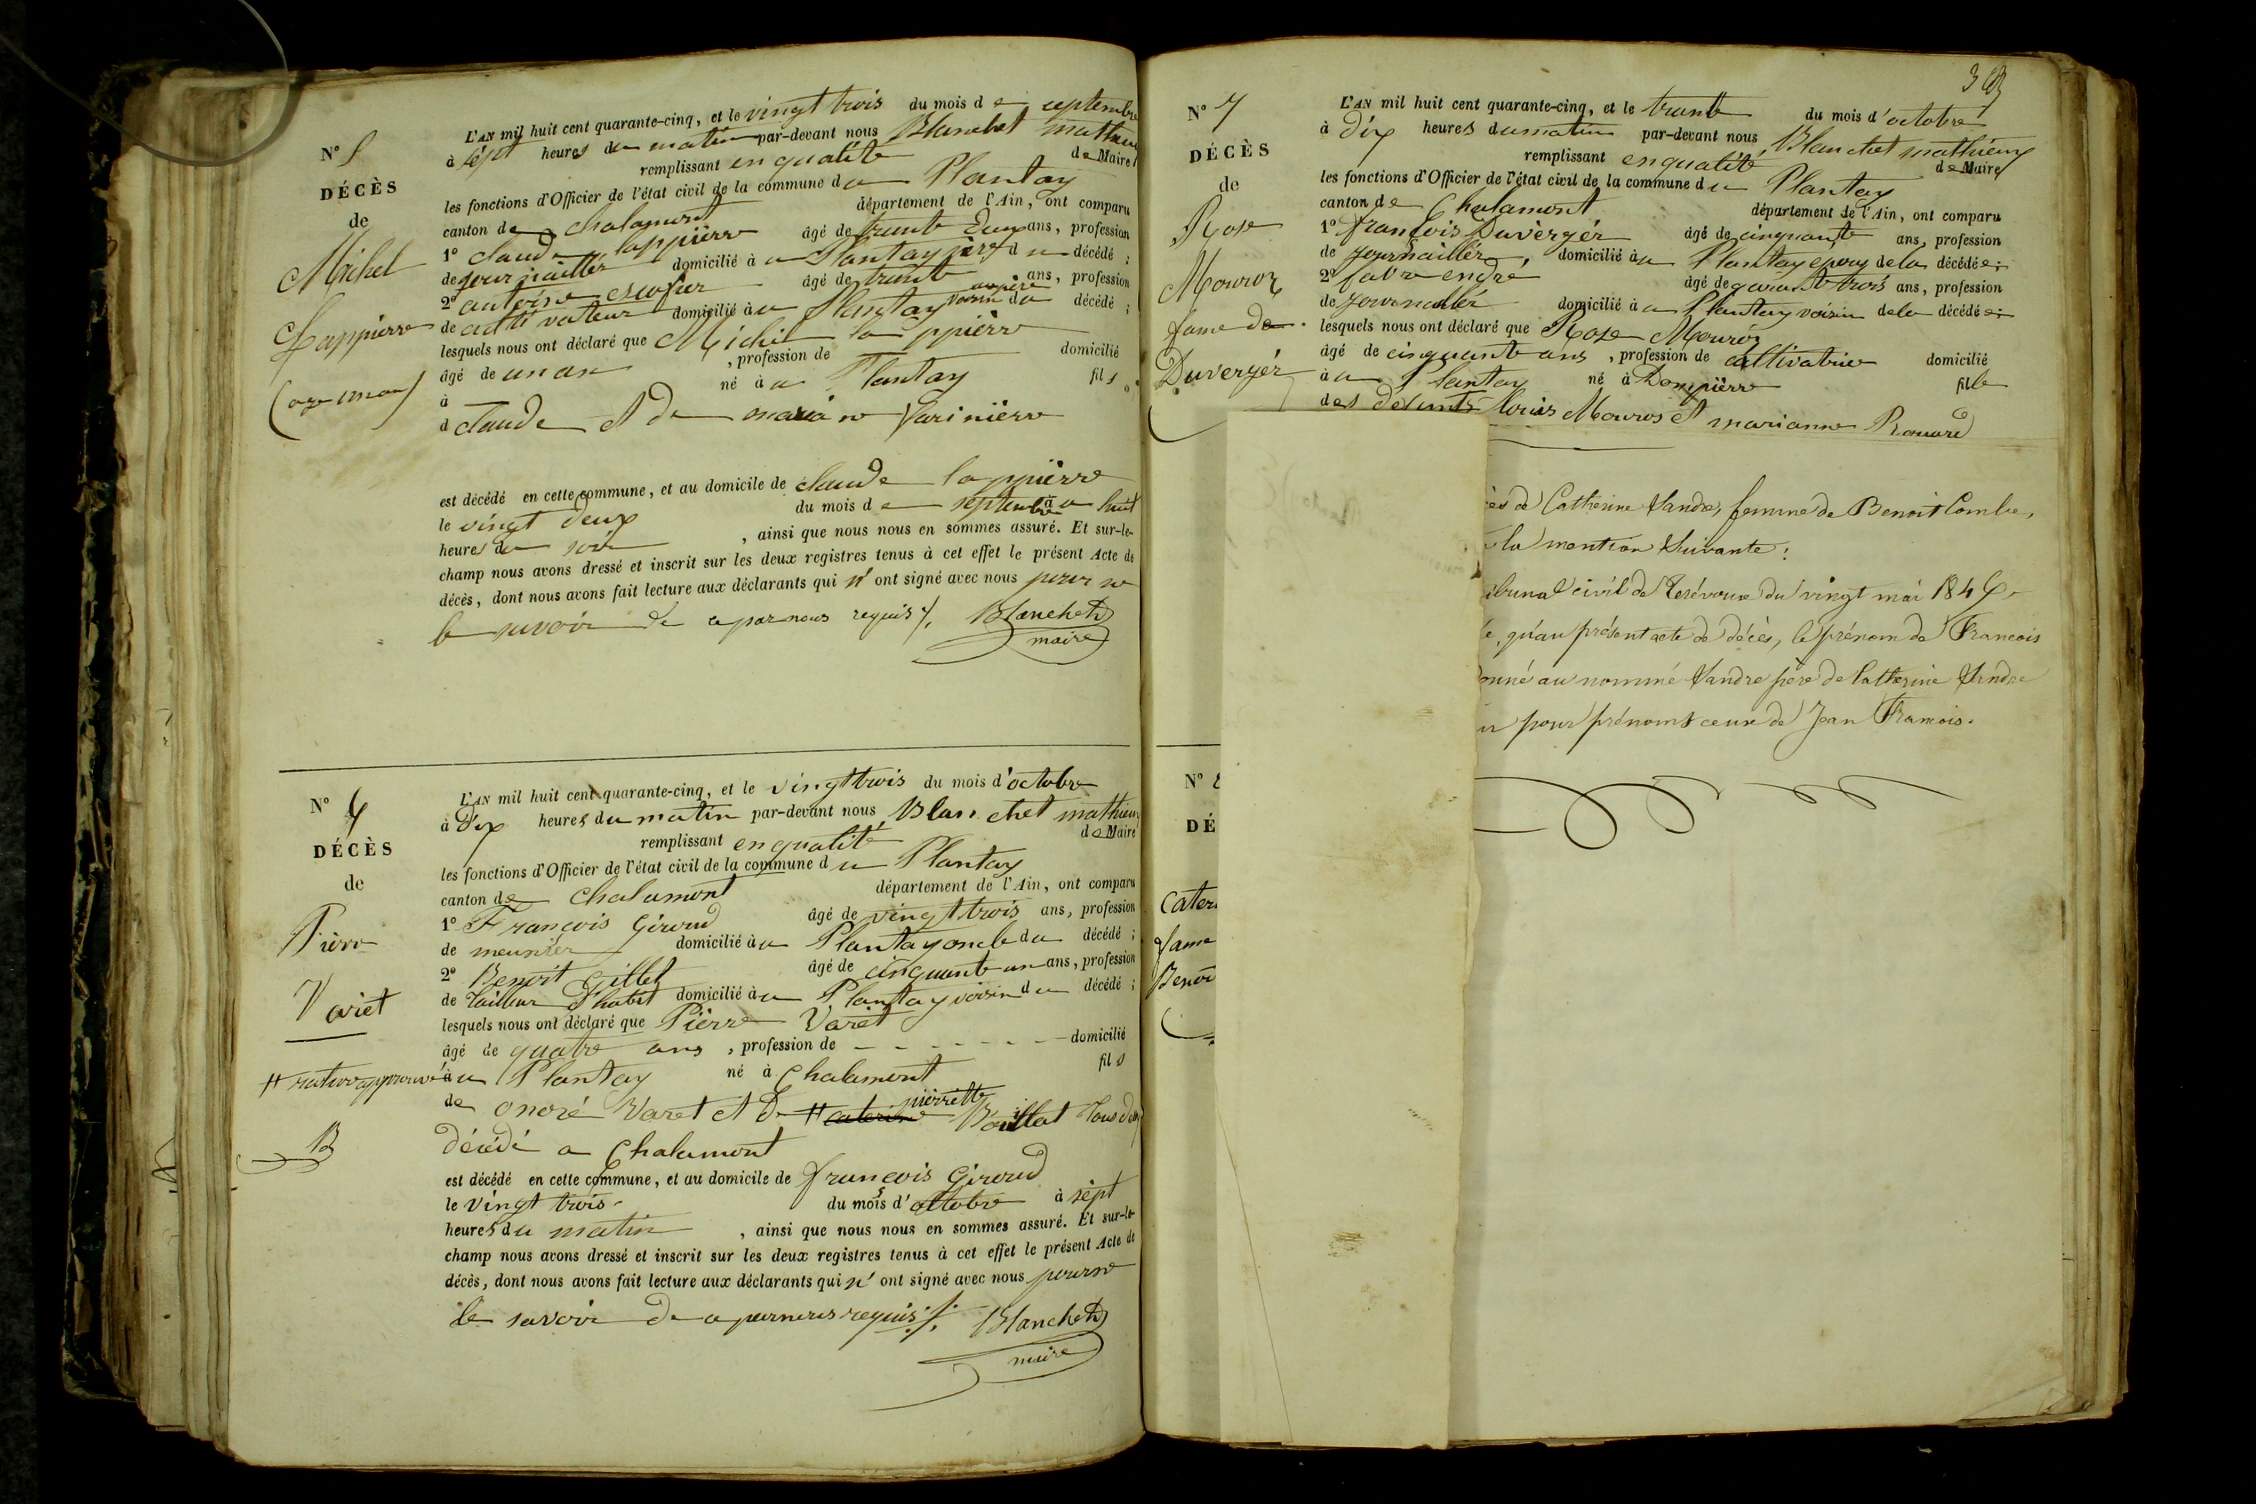 N° 5
DÉCÈS
de
Michel
Lappierre
(age unan)
L'AN mil huit cent quarante-cinq, et le vingt trois du mois de septembre
à sept heures du matin par-devant nous Blanchet mathieu
remplissant en qualité de Maire
les fonctions d'Officier de l'état civil de la commune du Plantay
canton de Chalamont département de l'Ain, ont comparu
1° claude lappierre âgé de trente deux ans, profession
de journaillér domicilié à u Plantay père du décédé ;
2° antoine escofier âgé de trente ans, profession
de cultivateur domicilié à u Plantay voisin du décédé ;
lesquels nous ont déclaré que Michel lappierre
âgé de unan , profession de domicilié
à né à u Plantay fils
d claude et de mariane Varinière
est décédé en cette commune, et au domicile de claude lappierre
le vingt deux du mois de septembre à huit
heures du soir , ainsi que nous nous en sommes assuré. Et sur-le-
champ nous avons dressé et inscrit sur les deux registres tenus à cet effet le présent Acte de
décès, dont nous avons fait lecture aux déclarants qui n' ont signé avec nous pour ne
le savoir de ce par nous requis /. Blanchet
maire
N° 6
DÉCÈS
de
Pierre
Variet
# rature approuvé
B
L'AN mil huit cent quarante-cinq, et le vingt trois du mois d'octobre
à dix heures du matin par-devant nous Blanchet mathieu
remplissant en qualité de Maire
les fonctions d'Officier de l'état civil de la commune du Plantay
canton de Chalamont département de l'Ain, ont comparu
1° François Giroud âgé de vingt trois ans, profession
de meunier domicilié à u Plantay oncle du décédé ;
2° Benoit Gillet âgé de cinquante un ans, profession
de tailleur d'habit domicilié à u Plantay voisin du décédé ;
lesquels nous ont déclaré que Pierre Variet
âgé de quatre ans , profession de - - - - - - - domicilié
à u Plantay né à Chalamont fils
de onoré Varet et de # caterine pierrette Bouillat tous deux
décédé a Chalamont
est décédé en cette commune, et au domicile de françois Giroud
le vingt trois du mois d'octobre à sept
heures du matin , ainsi que nous nous en sommes assuré. Et sur-le-
champ nous avons dressé et inscrit sur les deux registres tenus à cet effet le présent Acte de
décès, dont nous avons fait lecture aux déclarants qui n' ont signé avec nous pour ne
le savoir de ce par nous requis /. Blanchet
maire
N° 7
DÉCÈS
de
Rose
Mouroz
fame de
Duvergér
L'AN mil huit cent quarante-cinq, et le trente du mois d'octobre
à dix heures du matin par-devant nous Blanchet mathieu
remplissant en qualité de Maire
les fonctions d'Officier de l'état civil de la commune du Plantay
canton de Chalamont département de l'Ain, ont comparu
1° françois Duvergér âgé de cinquante ans, profession
de journaillér domicilié à u Plantay epoux de la décédée ;
2° favre endré âgé de quarante trois ans, profession
de journaillér domicilié à u Plantay voisin de la décédée ;
lesquels nous ont déclaré que Rose Mouroz
âgé de cinquante ans , profession de cultivatrice domicilié
à u Plantay né à Dompierre fille
des défunts louis Mouros et marianne Renard
ès de Catherine Vandre, femme de Benoit Combe,
la mention suivante :
ibunal civil de Trévoux du vingt mai 1846
qu'au présent acte de décès, le prénom de Francois
onné au nommé Vandre père de Catherine Vandre
pour prénoms ceux de Jean Francois.
N°
DÉ
Cater
fame
Benoi